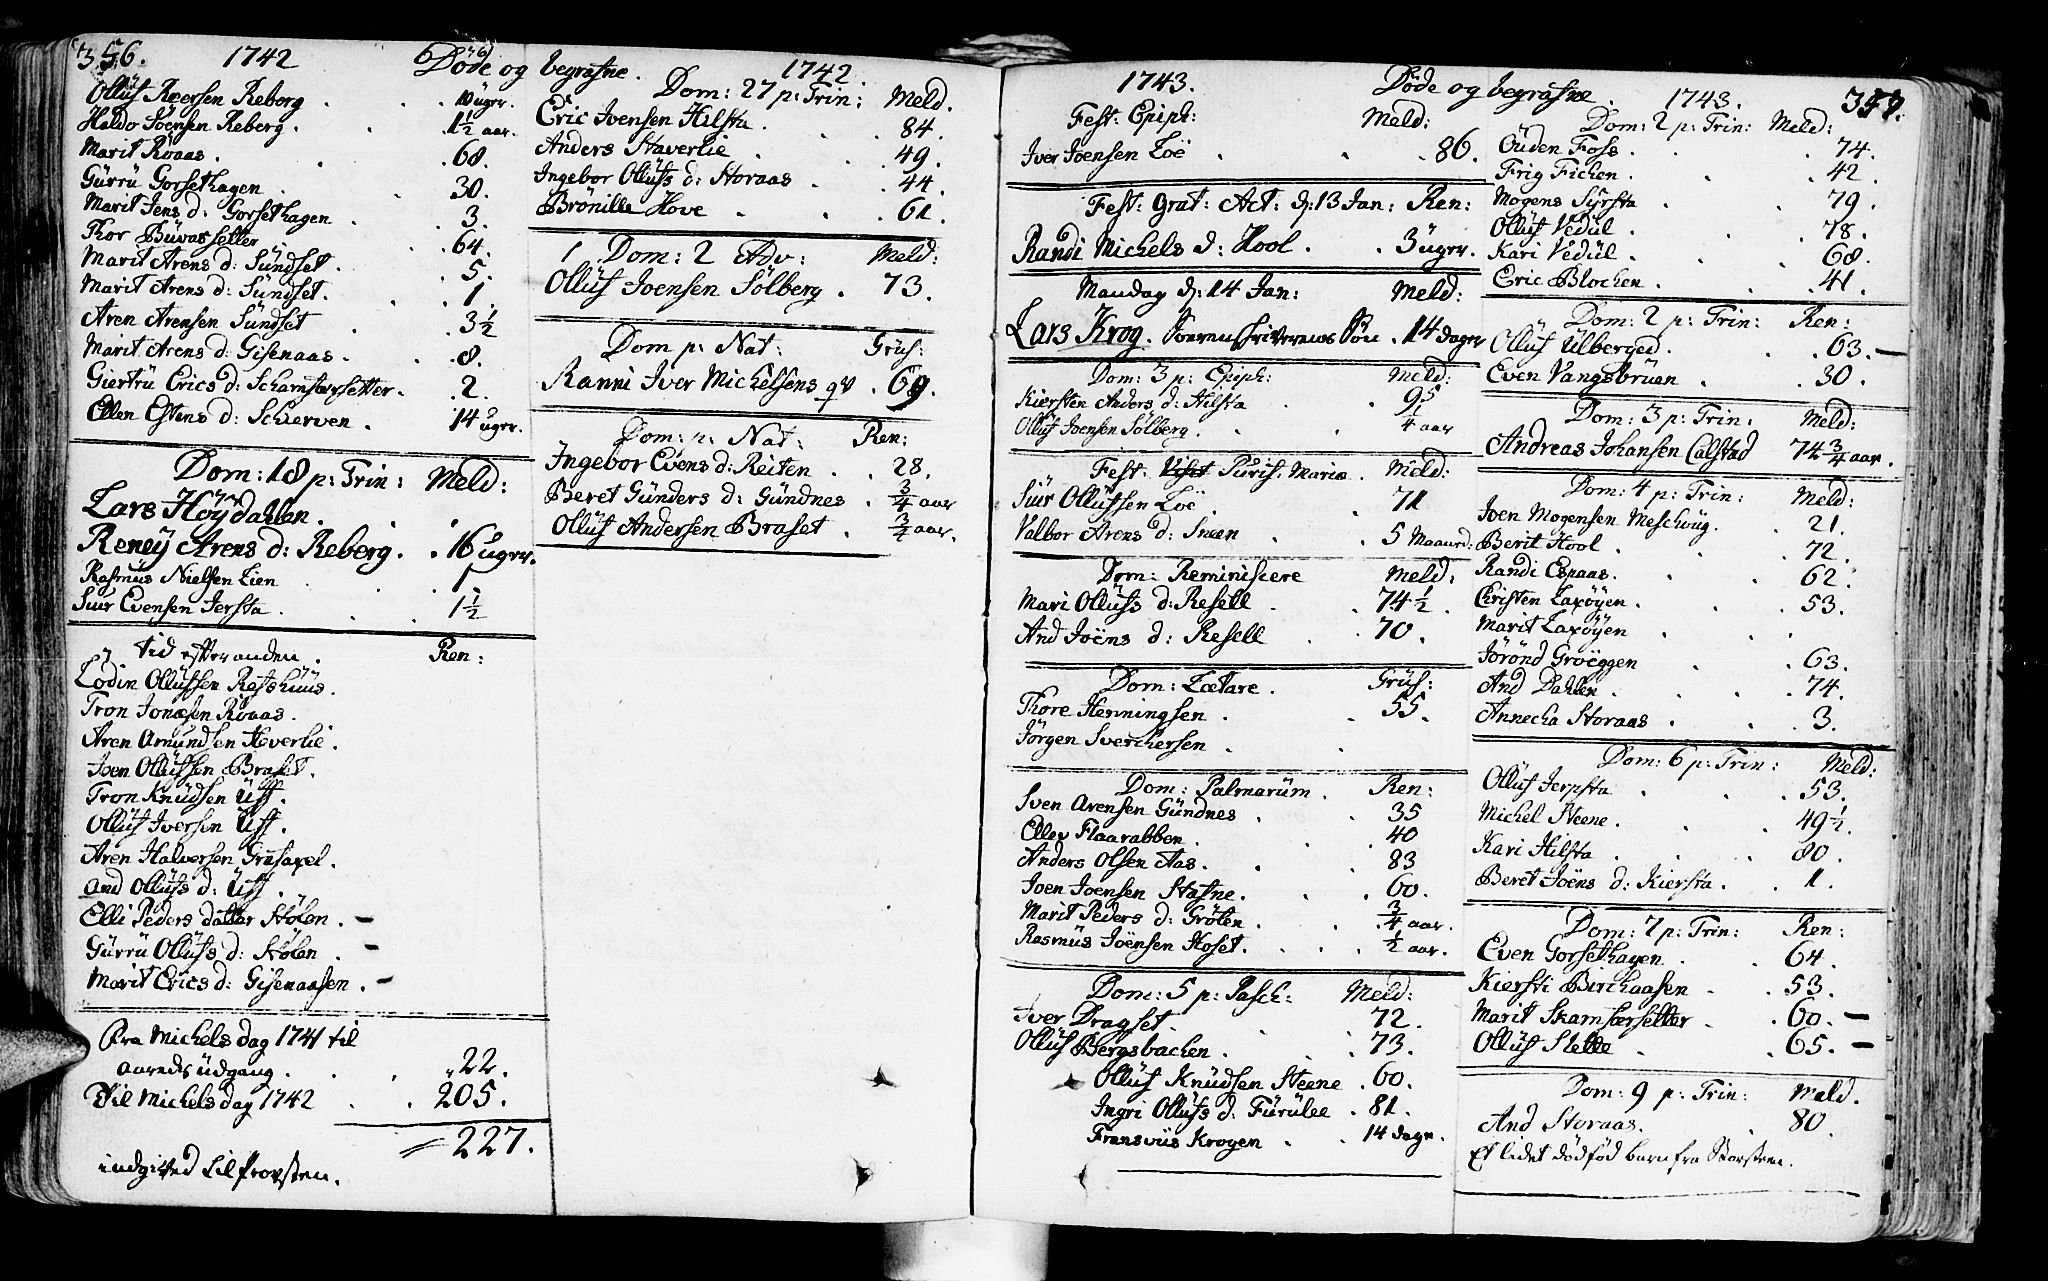 356. 1742 Döde og begrafne. 1742.
Ollüf Reersen Reborg . 10 ügrr.
Haldo Joensen Reberg . 1½ aar.
Marit Röaas . 68.
Gürrü Gorsethagen . 30.
Marit Jens d: Gorsethagen . 3.
Thor Büvasselter . 64.
Marit Arens d: Sündset . 5.
Marit Arens d: Sündset . 1.
Aren Arensen Sündset . 3½
Marit Arens d: Gisenaas . 8.
Giertrü Erics d: Scharnsærsetter . 2.
Ellen Estens d: Schierven . 14 ügrr.
Dom: 18 p: Trin: Meld:
Lars Höydahlen .
Reney Arens d: Reberg . 16 ügrr.
Rasmüs Nielsen Lien 1
Siur Evensen Jersta . 1½
tid efter anden . Ren:
Lodin Ollüfsen Rostshüüs.
Tron Jonæsen Röaas.
Aren Amündsen Heverlie.
Joen Ollüfsen Braset.
Tron Knüdsen Üff.
Ollüf Iversen Üff.
Aren Halversen Grüsaxel.
And Ollüfs d: Üff.
Elli Peders datter Stölen . –
Gürrü Ollüfs d: Stölen . –
Marit Erics d: Gisenaasen . –
Fra Michels dag 1741 til
aareds üdgang . 22.
Til Michels dag 1742 . 205.
= 227.
indgived til Provsten.
Dom: 27 p: Trin: Meld.
Eric Joensen Hilsta . 84.
Anders Staverlie . 49.
Ingebor Ollüfs d: Storaas . 44.
Brönille Hove . 61.
Dom: 2 Adv: Meld:
Ollüf Joensen Sölberg . 73.
Dom p: Nat: Grüf:
Ranni Iver Michelsens qv . 69.
Dom: p: Nat: Ren:
Ingebor Evens d: Reiten . 28.
Beret Günders d: Gündnes . ¾ aar
Ollüf Andersen Braset . ¾ aar.
1743. Döde og begrafne . 1743. 357.
Fest: Epiph: Meld:
Iver Joensen Loë . 86.
Fest: Grat: Act: d: 13 Jan: Ren:
Randi Michels d: Hool . 3 ügrr.
Mandag d: 14 Jan: Meld:
Lars Krog. Sorenskriverens Sön . 14 dager
Dom: 3 p: Epiph: Meld:
Kiersten Anders d: Hilsta . 95
Ollüf Joensen Sölberg . ¼ aar
Fest: Visit Pürif: Mariæ . Meld:
Siür Ollüfsen Loë . 71
Valbor Arens d: Sneen . 5 Maaned:
Dom: Reminiscere Meld:
Mari Ollüfs d: Resell . 74½.
And Joëns d: Resell . 70.
Dom: Lætare . Grüf:
Thore Henningsen . 55.
Jörgen Sverchersen .
Dom: Palmarüm . Ren:
Sven Arensen Gündnes . 35
Ellev Flaarabben . 40
Anders Olsen Aas . 83
Joen Joensen Stafne . 60.
Marit Peders d: Gröten . ¾ aar.
Rasmüs Joënsen Hoset . ½ aar.
Dom: 5 p: Pasch: Meld:
Iver Dragset . 72.
Ollüf Bergsbachen . 73.
Ollüf Knüdsen Steene . 60.
Ingri Ollüfs d: Fürülee . 81.
Fransüüs Krogen . 14 dagr.
Dom: 2 p: Trin: Meld:
Oüden Foss . 74.
Frig Fichen . 42.
Mogens Syrsta . 79.
Ollüf Vedül . 78.
Kari Vedül . 68.
Eric Blochen . 41.
Dom: 2 p: Trin: Ren:
Ollüf Ülberged . 63. –
Even Vangsbrüen . 30.
Dom: 3 p: Trin: Meld:
Andreas Johansen Calstad 74¾ aar.
Dom: 4 p: Trin: Meld:
Joen Mogensen Meschoüg . 21.
Berit Hool . 72.
Randi Espaas . 62.
Christen Laxöyen . 53.
Marit Laxöyen .
Jörönd Gröeggen . 63.
And Dahlen . 74.
Annecha Storaas . 3.
Dom: 6 p: Trin: Meld:
Ollüf Jerpsta . 53.
Michel Steene . 49½.
Kari Hilsta . 80.
Beret Joëns d: Kiersta . 1.
Dom: 7 p: Trin: Ren:
Even Gorsethagen . 64.
Kiersti Birchaasen . 53.
Marit Skarnsærsetter . 60. –
Ollüf Slette . 65. –
Dom: 9 p: Trin: Meld.
And Storaas . 80.
Et lidet dödföd barn fra Storsteen.